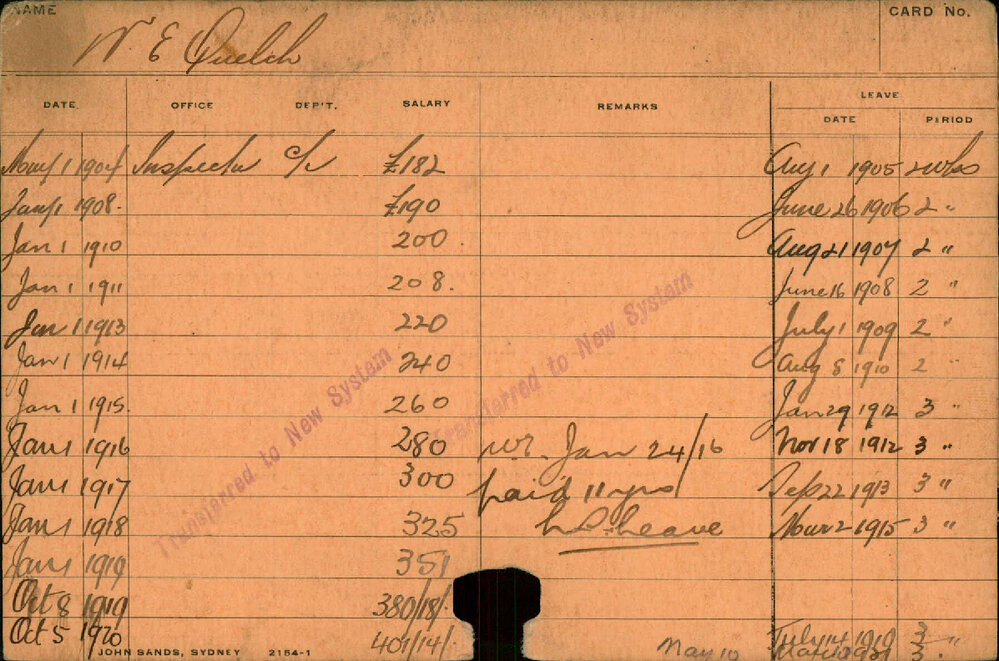 NAME CARD No.
W E Quelch
LEAVE
DATE OFFICE DEP'T. SALARY REMARKS DATE PERIOD
May 1 1904 Inspector £182 Aug 1 1905 2 wks
Jan 1 1908. £190 June 26 1906 2 "
Jan 1 1910 200. Aug 21 1907 2 "
Jan 1 1911 208. June 16 1908 2 "
Jan 1 1913 220 July 1 1909 2 "
Jan 1 1914 240 Aug 8 1910 2
Jan 1 1915. 260 Jan 29 1912 3 "
Jan 1 1916 280 Jan 24/16 Nov 18 1912 3 "
Jan 1 1917 300 paid 11 yrs Sep 22 1913 3 "
Jan 1 1918 325 Leave Mar 2 1915 3 "
Jan 1 1919 351
Oct 8 1919 380/18/-
Oct 5 1920 401/14/- May 10 July 14 1919 3 "
3 "
Transferred to New System
Transferred to New System
JOHN SANDS, SYDNEY 2154-1